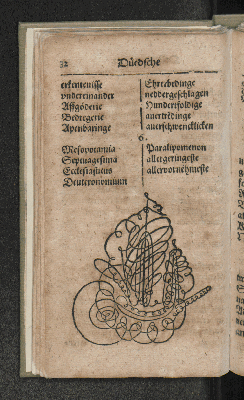 32 Düedsche
erkentenisse
vndereinander
Affgöderie
Bedregerie
Apenbaringe
Ehrerbedinge
neddergeschlagen
Hunderfoldige
auertredinge
auerschwencklicken
6.
Mesopotamia
Septuagesima
Ecclesiasticus
Deuteronomium
Paralipomenon
allergeringeste
allervornehmeste